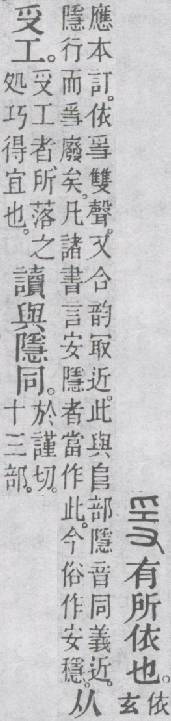 𤔌有所依也。依玄
應本訂。依𤔌雙聲。又合韵冣近。此與𨸏部隱音同義近。
隱行而𤔌廢矣。凡諸書言安隱者當作此。今俗作安穩。从
𠬪工。𠬪工者所落之処巧得宜也。讀與隱同。於謹切。十三部。